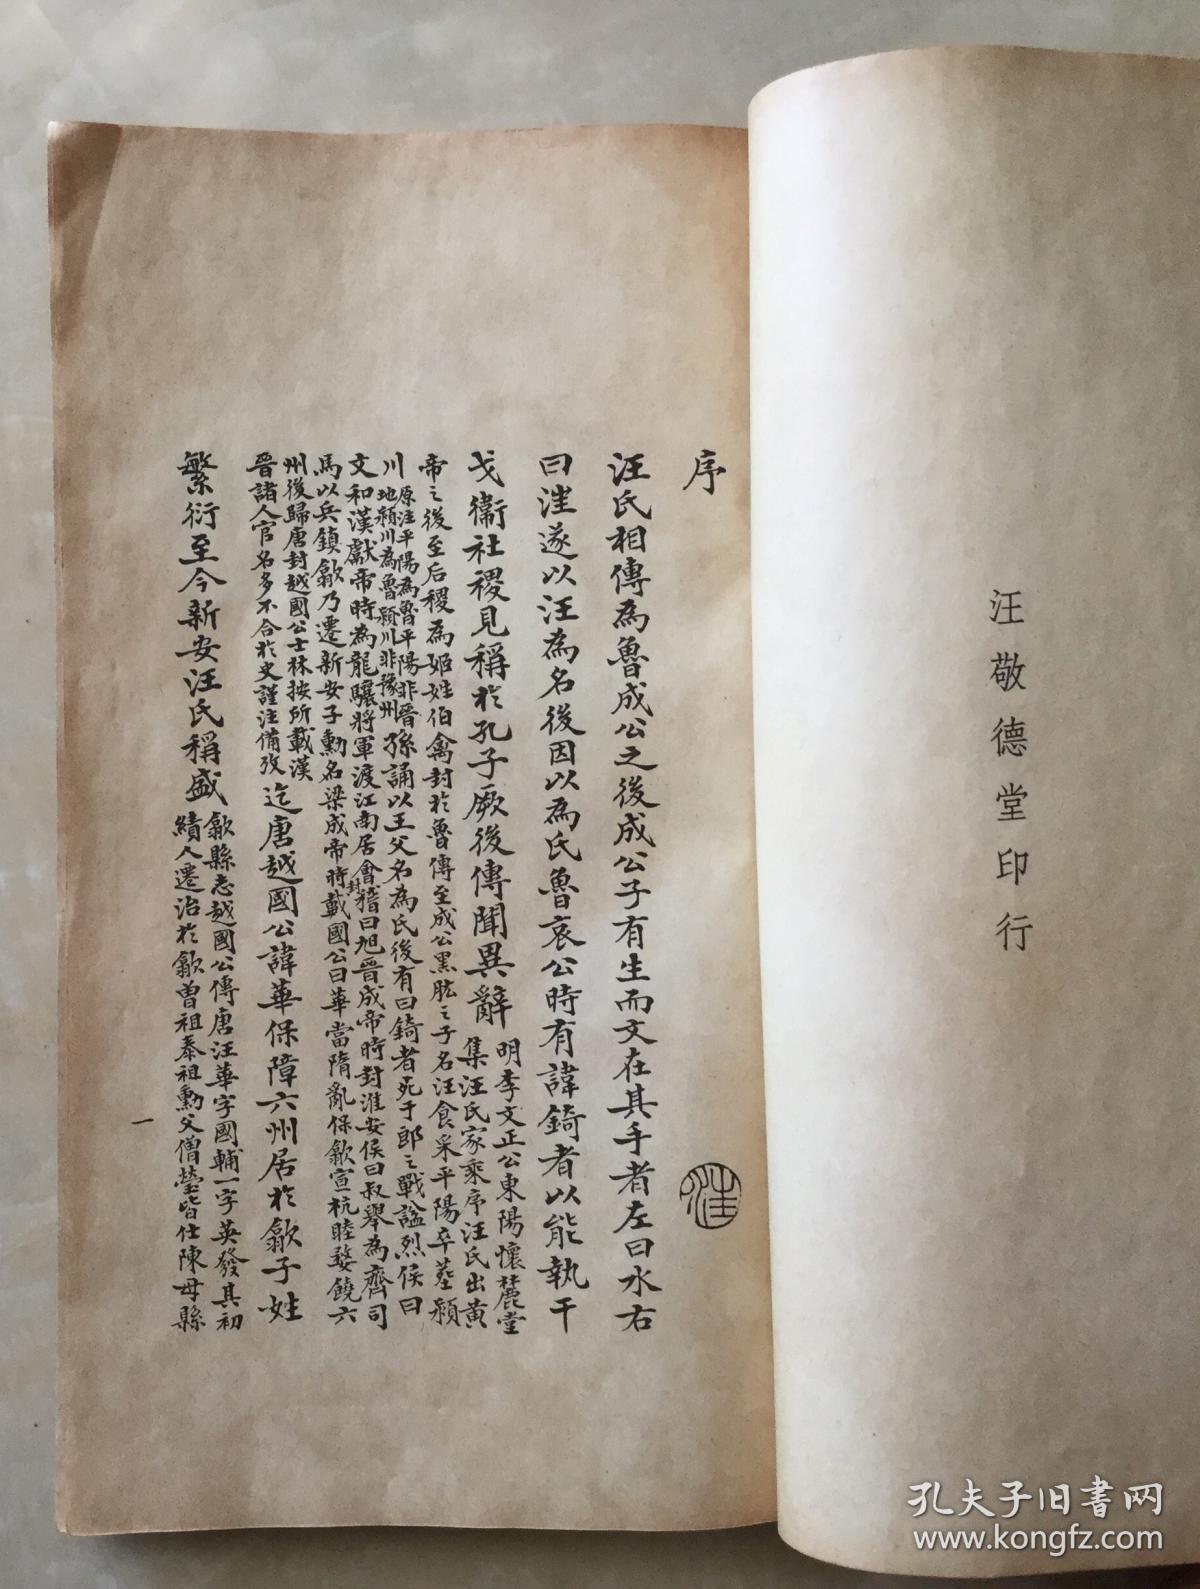 汪敬德堂印行
序
汪氏相傳為魯成公之後成公子有生而文在其手者左曰水右
曰㳷遂以汪為名後因以為氏魯哀公時有諱錡者以能執干
戈衞社稷見稱於孔子厥後傳聞異辭
明李文正公東陽懷麓堂
集汪氏家乘序汪氏出黃
帝之後至后稷為姬姓伯禽封於魯傳至成公黑肱之子名汪食采平陽卒塟潁
川
原注平陽為魯平陽非晉
地潁川為魯潁川非豫州
孫誦以王父名為氏後有曰錡者死于郎之戰諡烈侯曰
文和漢獻帝時為龍驤將軍渡江南居會稽曰旭晉成帝時封淮安侯曰叔舉為齊司
馬以兵鎮歙乃遷新安子勳名梁成帝時封戴國公曰華當隋亂保歙宣杭睦婺饒六
州後歸唐封越國公士林按所載漢
晉諸人官名多不合於史謹注備攷
迄唐越國公諱華保障六州居於歙子姓
繁衍至今新安汪氏稱盛
歙縣志越國公傳唐汪華字國輔一字英發其初
績人遷治於歙曾祖泰祖勳父僧瑩皆仕陳母縣
一
孔夫子旧书网
www.kongfz.com